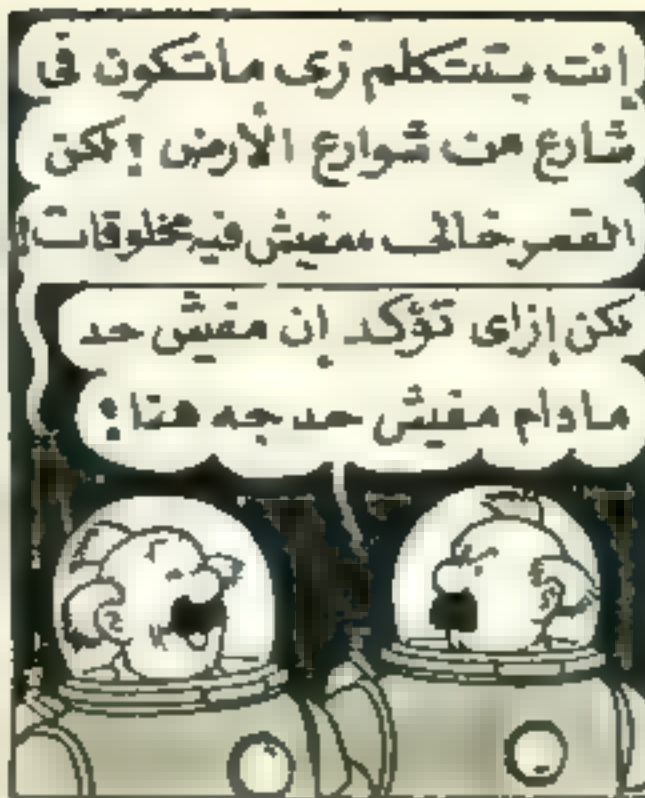 إنت بتتكلم زى ماتكون فى
شارع من شوارع الأرض ! لكن
القمر خالى مفيش فيه مخلوقات !
لكن إزاى تؤكد إن مفيش حد
مادام مفيش حد جه هنا !